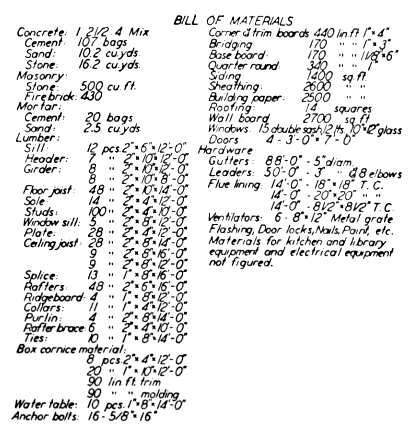 BILL OF MATERIALS
Concrete: 1 2 1/2 4 Mix
Cement 107 bags
Sand: 10.2 cu.yds
Stone: 16.2 cu.yds.
Masonry:
Stone: 500 cu.ft.
Firebrick: 430
Mortar:
Cement: 20 bags
Sand: 2.5 cu.yds
Lumber:
Sill: 12 pcs. 2"×6"×12'-0"
Header: 7 " 2"×10"×12'-0"
Girder: 8 " 2"×10"×12'-0"
8 " 2"×10"×8'-0"
Floor joist: 48 " 2"×10"×14'-0"
Sole: 14 " 2"×4"×12'-0"
Studs: 100 " 2"×4"×10'-0"
Window sill: 5 " 2"×8"×12'-0"
Plate: 28 " 2"×4"×12'-0"
Ceiling joist: 28 " 2"×8"×14'-0"
9 " 2"×6"×16'-0"
9 " 2"×8"×12'-0"
Splice: 13 " 1"×8"×16'-0"
Rafters: 48 " 2"×6"×16'-0"
Ridgeboard: 4 " 1"×8"×12'-0"
Collars: 11 " 1"×4"×12'-0"
Purlin: 4 " 2"×8"×14'-0"
Rafter brace: 6 " 2"×4"×10'-0"
Ties: 10 " 1"×8"×14'-0"
Box cornice material:
8 pcs. 2"×4"×12'-0"
20 " 1"×10"×12'-0"
90 lin. ft. trim
90 " " molding
Water table: 10 pcs. 1"×8"×14'-0"
Anchor bolts: 16 - 5/8"×16"
Corner & trim boards 440 lin.ft. 1"×4"
Bridging 170 " " 1"×3"
Base board: 170 " " 1 1/8"×6"
Quarter round 340 " "
Siding 1400 sq. ft.
Sheathing: 2600 " "
Building paper: 2500 " "
Roofing: 14 squares
Wall board 2700 sq. ft
Windows: 15 double sash, 12 lts, 10"×12" glass
Doors 4 - 3'-0"×7'-0"
Hardware
Gutters: 88'-0" - 5" diam.
Leaders: 50'-0" - 3" " & 8 elbows
Flue lining 14'-0" - 18"×18" T.C.
14'-0" - 20"×20" T.C.
14'-0" - 8 1/2"×8 1/2" T.C.
Ventilators: 6 - 8"×12" Metal grate
Flashing, Door locks, Nails, Paint, etc.
Materials for kitchen and library
equipment and electrical equipment
not figured.